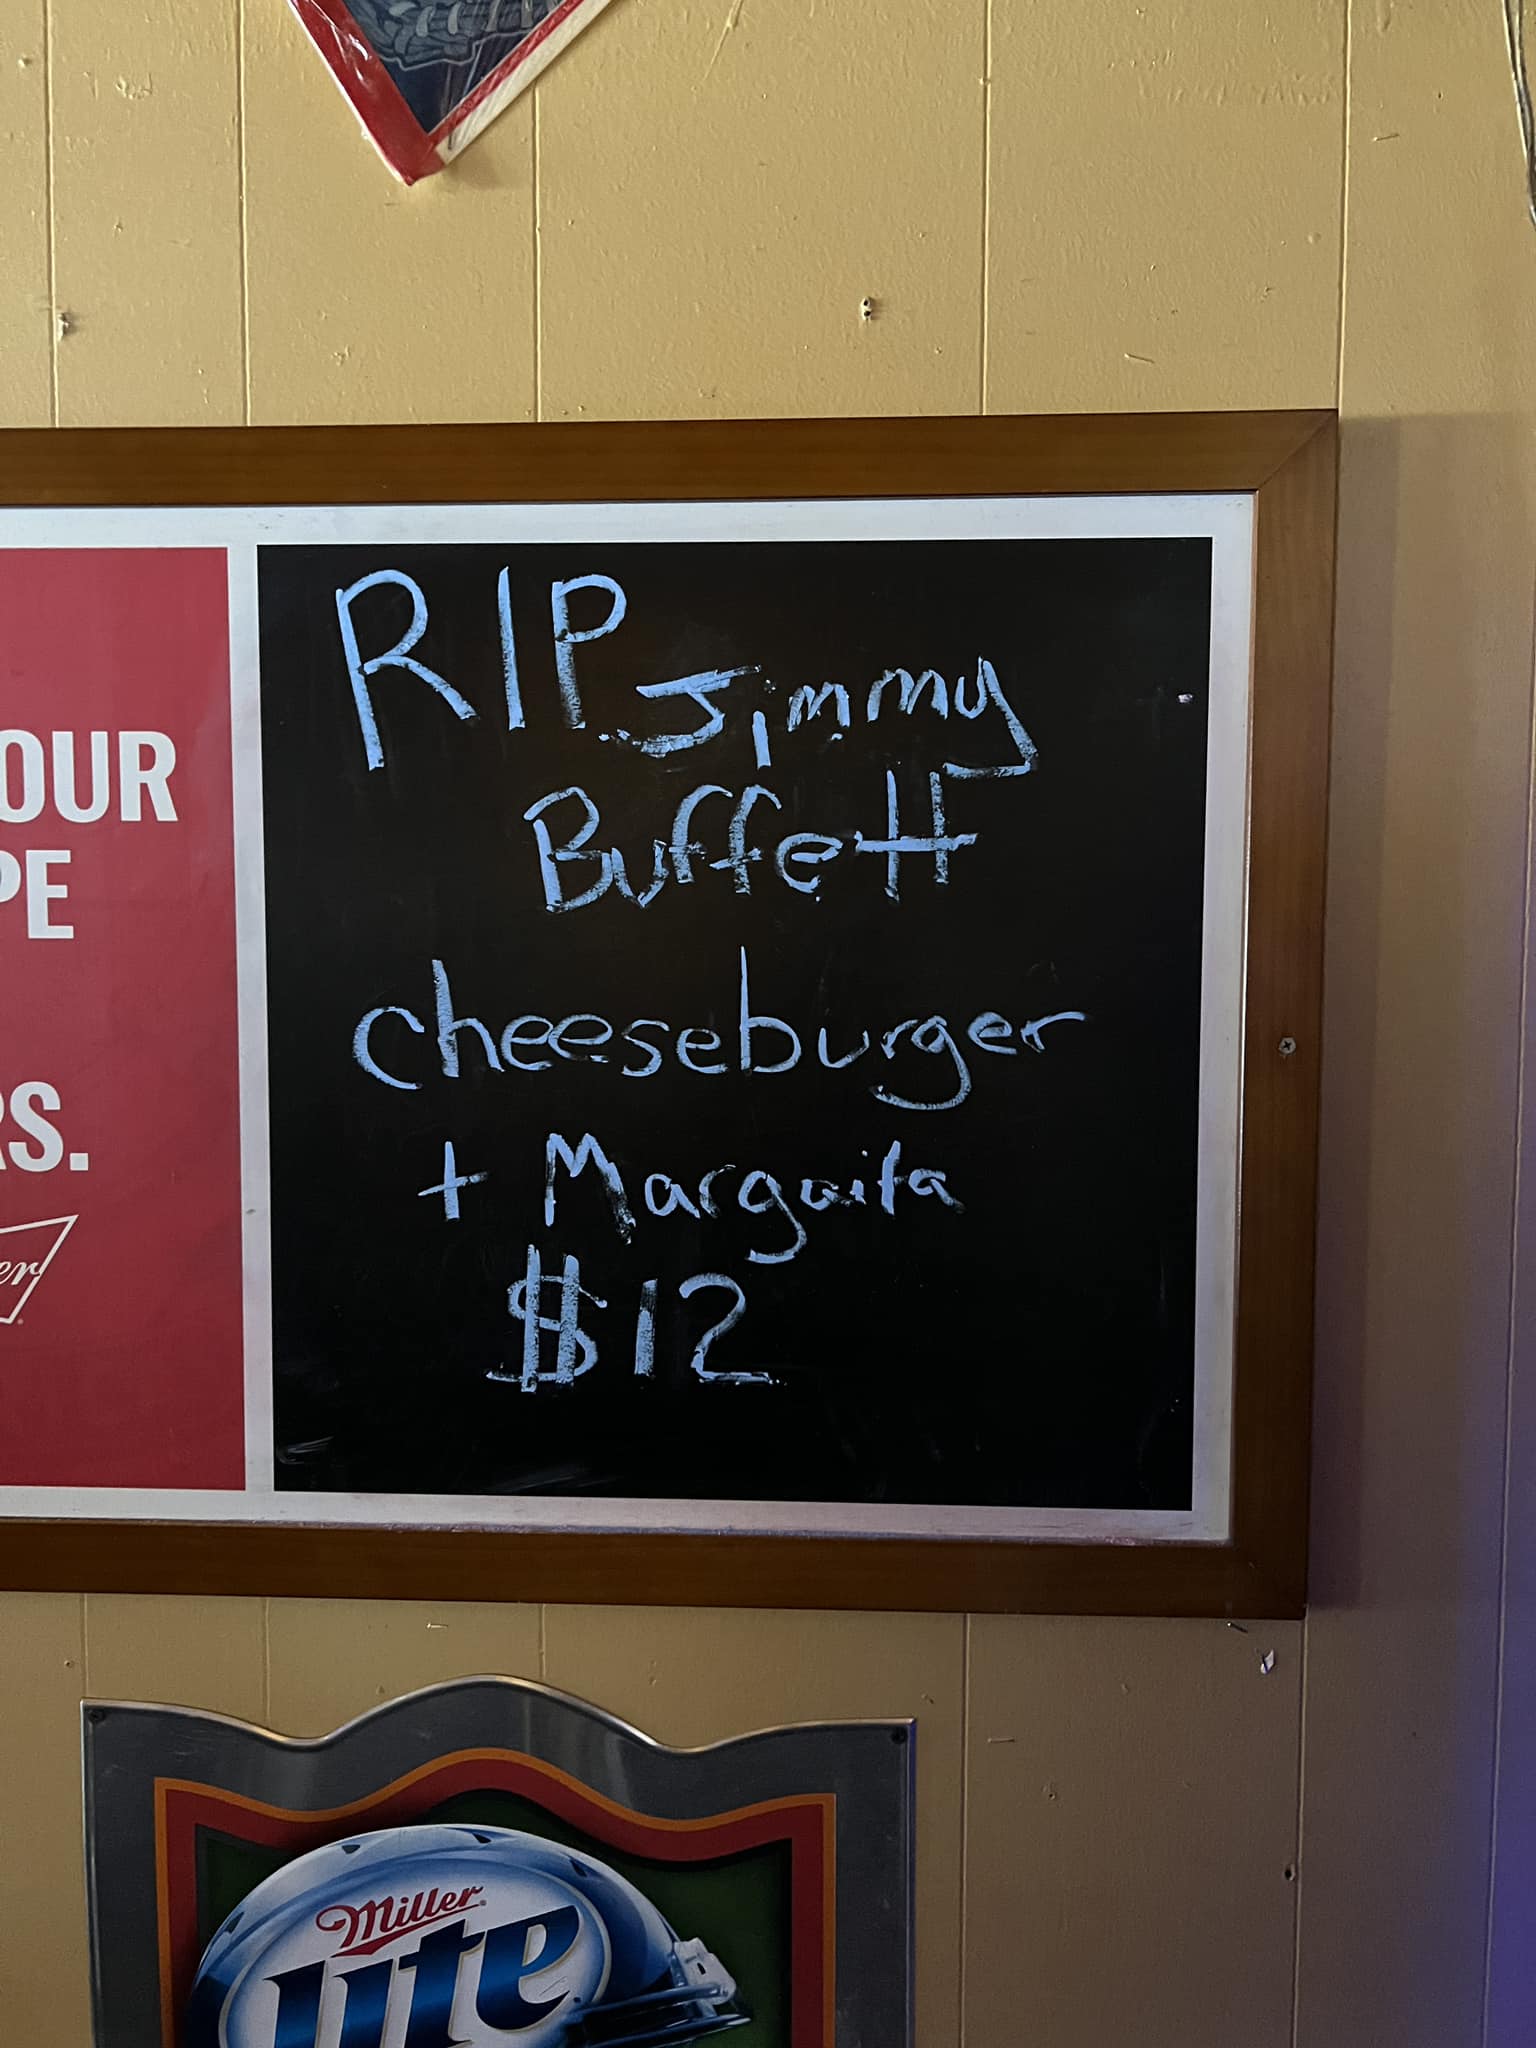 RIP Jimmy
Buffett
cheeseburger
+ Margaita
$12
OUR
PE
RS.
er
Miller
Lite